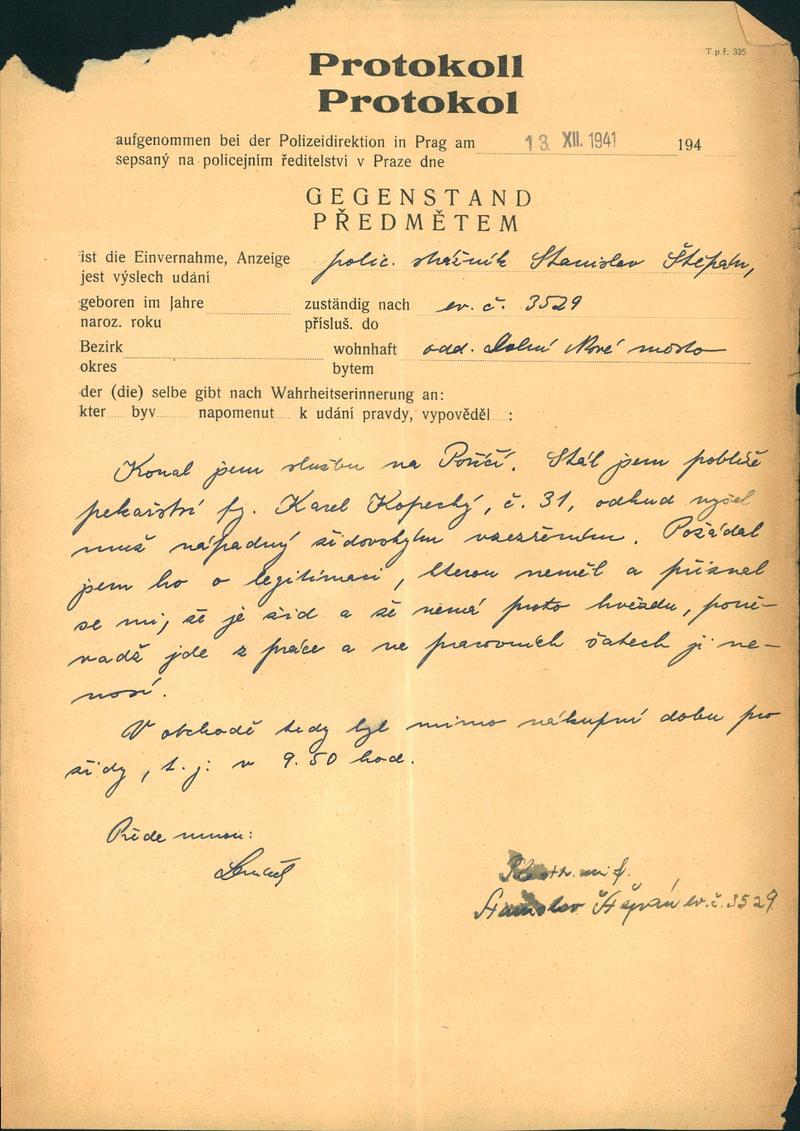 T.p.ř. 325
Protokoll
Protokol
aufgenommen bei der Polizeidirektion in Prag am 13. XII. 1941 194
sepsaný na policejním ředitelství v Praze dne
GEGENSTAND
PŘEDMĚTEM
ist die Einvernahme, Anzeige polic. strážník Stanislav Štěpán,
jest výslech udání
geboren im Jahre zuständig nach ev. č. 3529
naroz. roku přísluš. do
Bezirk wohnhaft odd. Dolní Nové město
okres bytem
der (die) selbe gibt nach Wahrheitserinnerung an:
kter byv napomenut k udání pravdy, vypověděl :
Konal jsem službu na Poříčí. Stál jsem poblíže
pekařství fy. Karel Kopecký, č. 31, odkud vyšel
muž nápadný židovským vzezřením. Požádal
jsem ho o legitimaci, kterou neměl a přiznal
se mi, že je žid a že nemá proto hvězdu, poně-
vadž jde z práce a ve pracovních šatech ji ne-
nosí.
V obchodě tedy byl mimo nákupní dobu pro
židy, t. j. v 9.50 hod.
Přede mnou:
Stanislav Štěpán ev. č. 3529